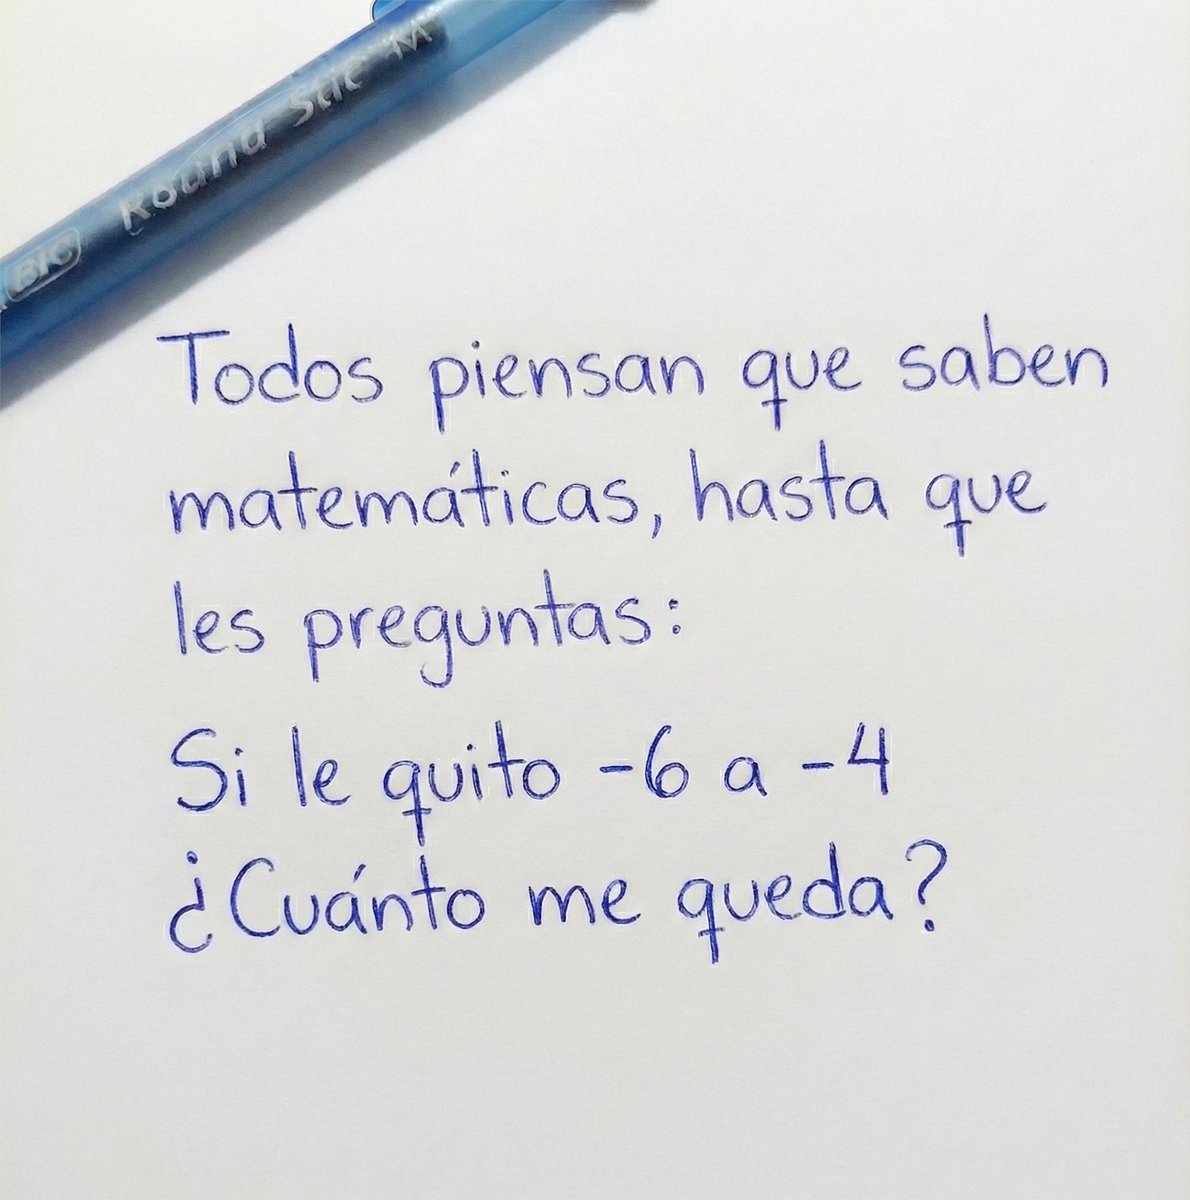 BIC Round Stic M
Todos piensan que saben
matemáticas, hasta que
les preguntas:
Si le quito -6 a -4
¿Cuánto me queda?